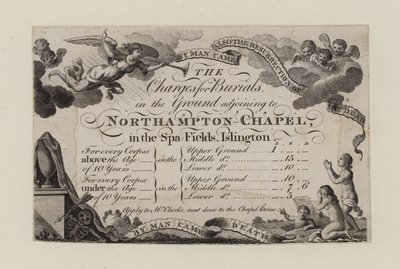 BY MAN CAME
ALSO THE RESURRECTION OF
THE DEAD
THE
Charges for Burials,
in the Ground adjoining to
NORTHAMPTON CHAPEL,
in the Spa Fields, Islington.
£ S D
For every Corpse
above the Age
of 10 Years
in the
Upper Ground 1 . — . —
Middle do. 15 . —
Lower do. 10 . —
For every Corpse
under the Age
of 10 Years
in the
Upper Ground 10 . —
Middle do. 7 . 6
Lower do. 5
Apply to Mr. Clarke, next door to the Chapel House.
BY MAN CAME DEATH